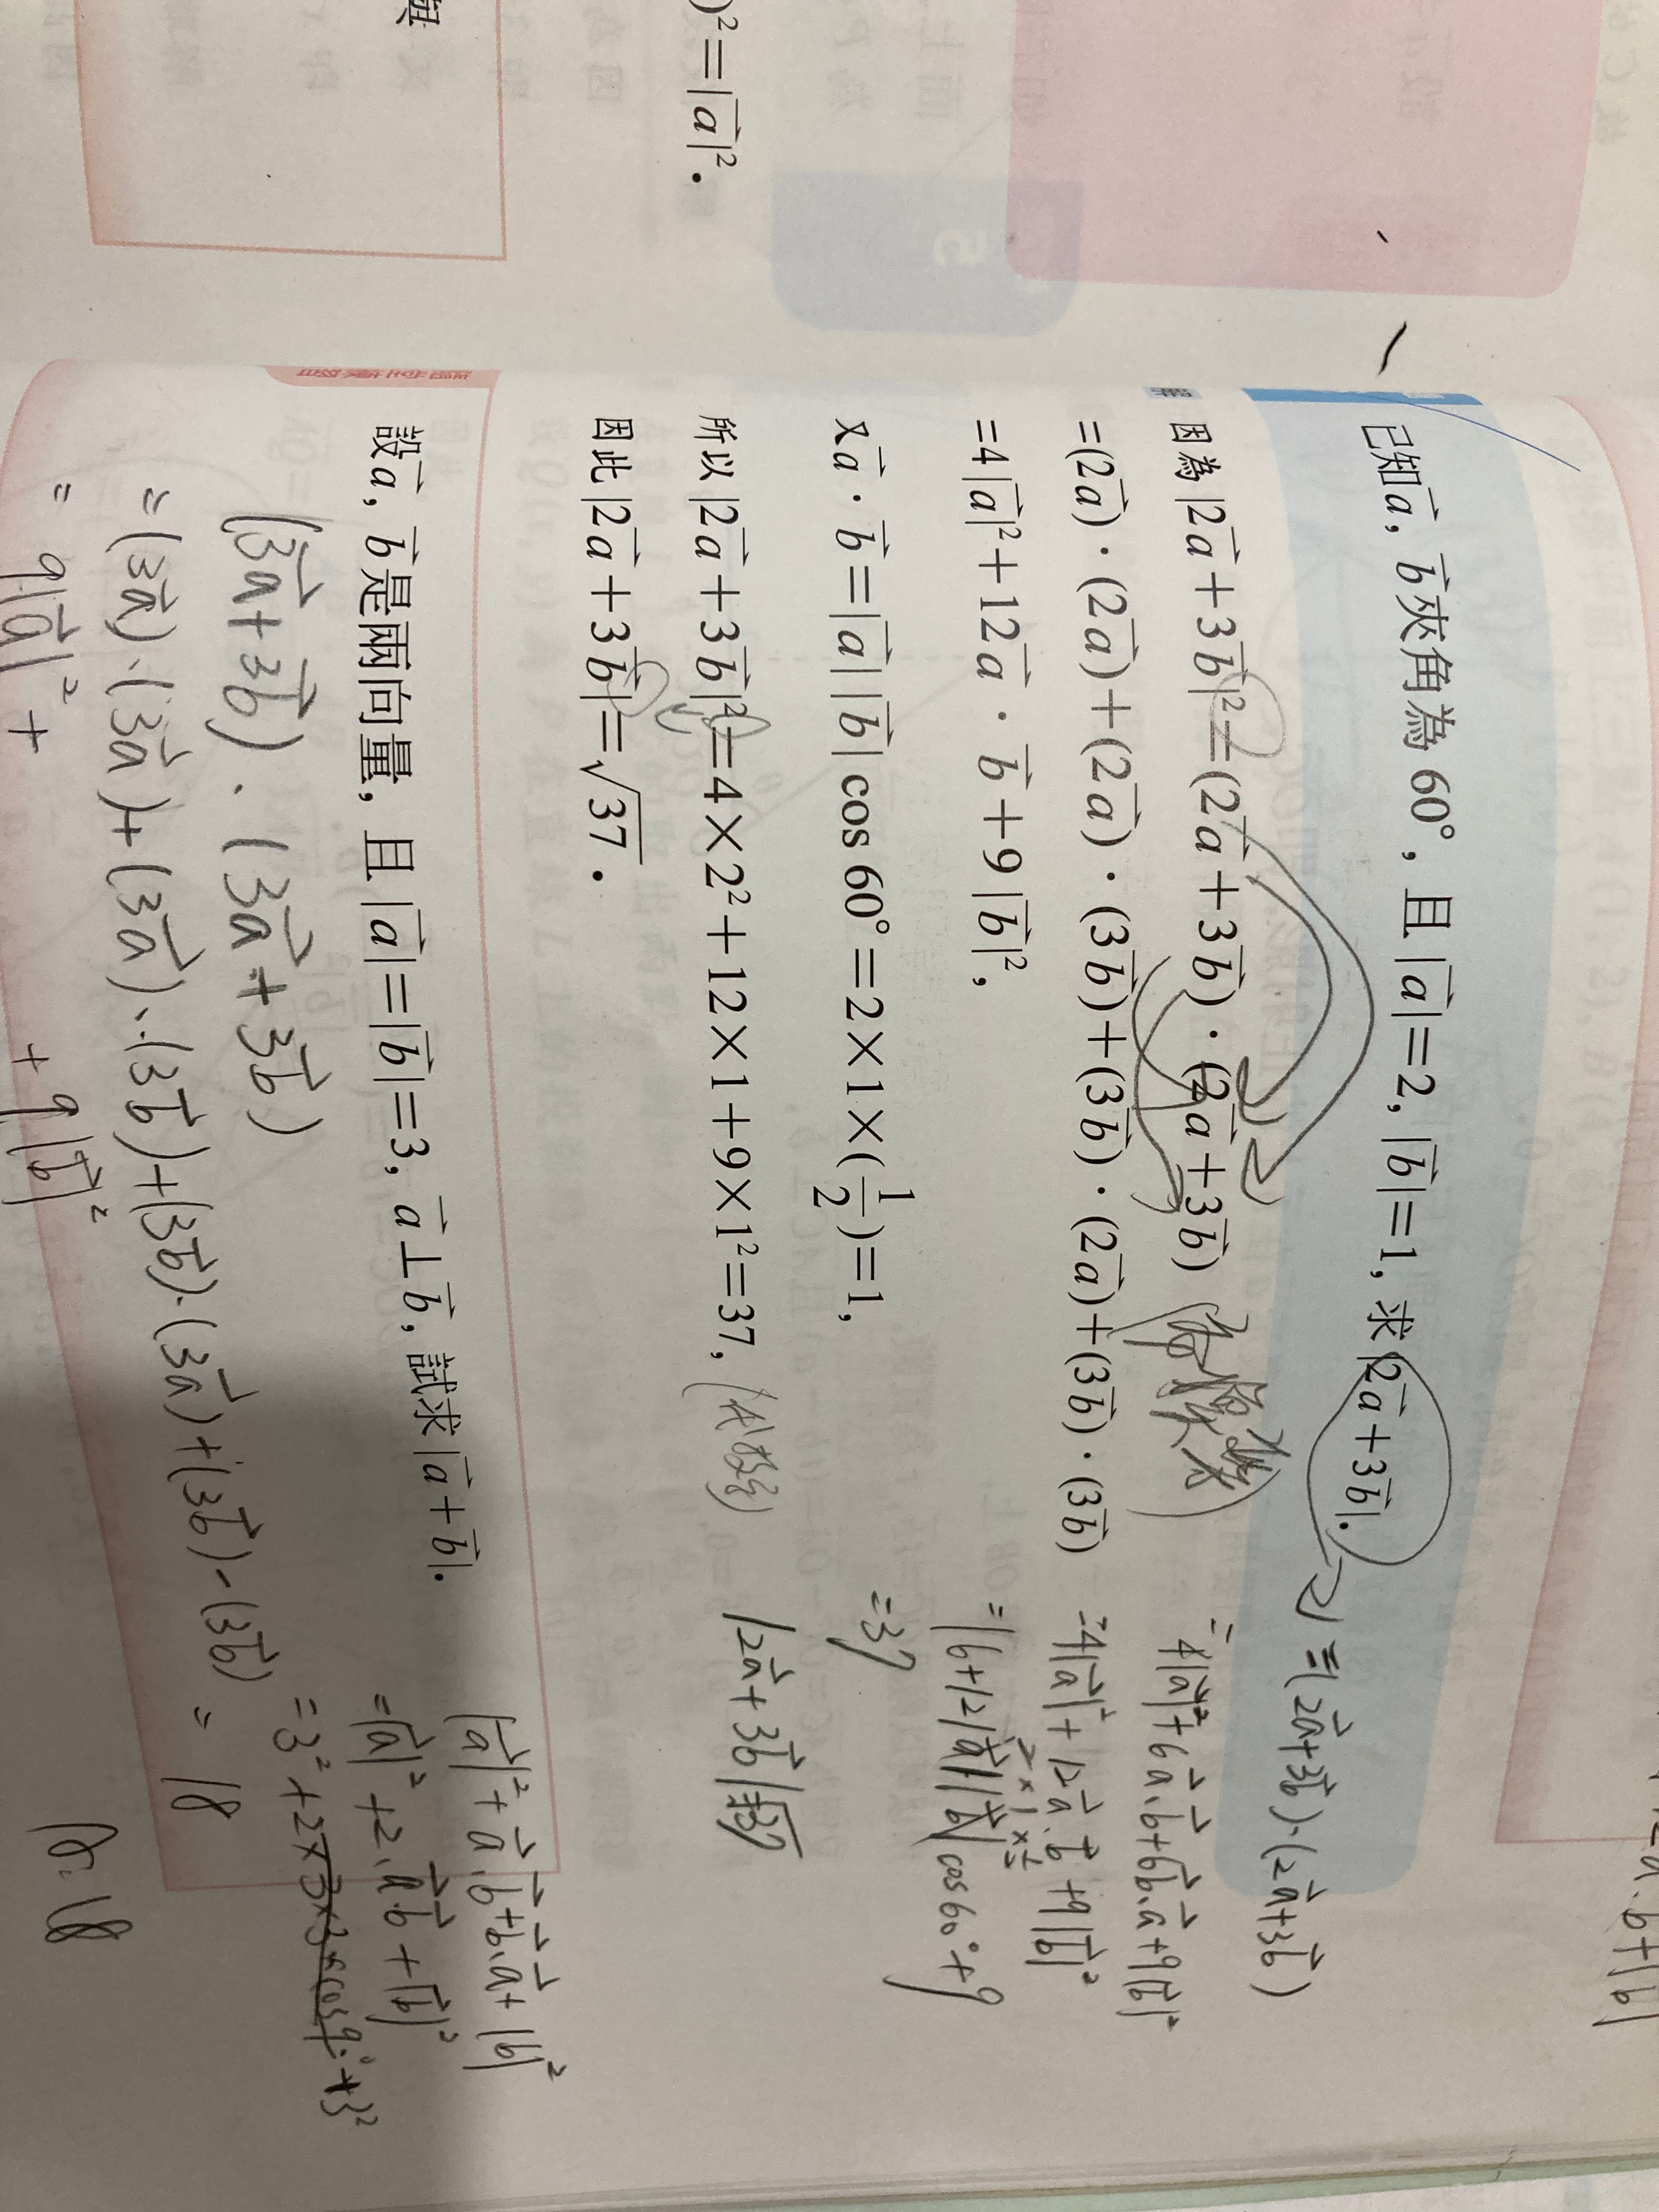 )²=|a⃗|².
與
已知a⃗, b⃗夾角為 60°, 且 |a⃗|=2, |b⃗|=1, 求|2a⃗+3b⃗|.
=(2a⃗+3b⃗)·(2a⃗+3b⃗)
因為 |2a⃗+3b⃗|²=(2a⃗+3b⃗)·(2a⃗+3b⃗)
=4|a⃗|²+6a⃗·b⃗+6b⃗·a⃗+9|b⃗|²
=(2a⃗)·(2a⃗)+(2a⃗)·(3b⃗)+(3b⃗)·(2a⃗)+(3b⃗)·(3b⃗)
=4|a⃗|²+12a⃗·b⃗+9|b⃗|²
2×1×½
=4|a⃗|²+12a⃗·b⃗+9|b⃗|²,
=16+12|a⃗||b⃗|cos60°+9
又a⃗·b⃗=|a⃗||b⃗|cos 60°=2×1×(1/2)=1,
=37
所以 |2a⃗+3b⃗|²=4×2²+12×1+9×1²=37,
|2a⃗+3b⃗|=√37
因此 |2a⃗+3b⃗|=√37.
設a⃗, b⃗是兩向量, 且 |a⃗|=|b⃗|=3, a⃗⊥b⃗, 試求 |a⃗+b⃗|.
|a⃗|²+a⃗·b⃗+b⃗·a⃗+|b|²
=|a⃗|²+2·a⃗·b⃗+|b⃗|²
(3a⃗+3b⃗)·(3a⃗+3b⃗)
=(3a⃗)·(3a⃗)+(3a⃗)·(3b⃗)+(3b⃗)·(3a⃗)+(3b⃗)-(3b⃗)
= 18
= 9|a⃗|²+ +9|b⃗|²